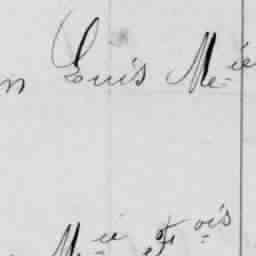 n Luis M.ie
M.ie f.ois